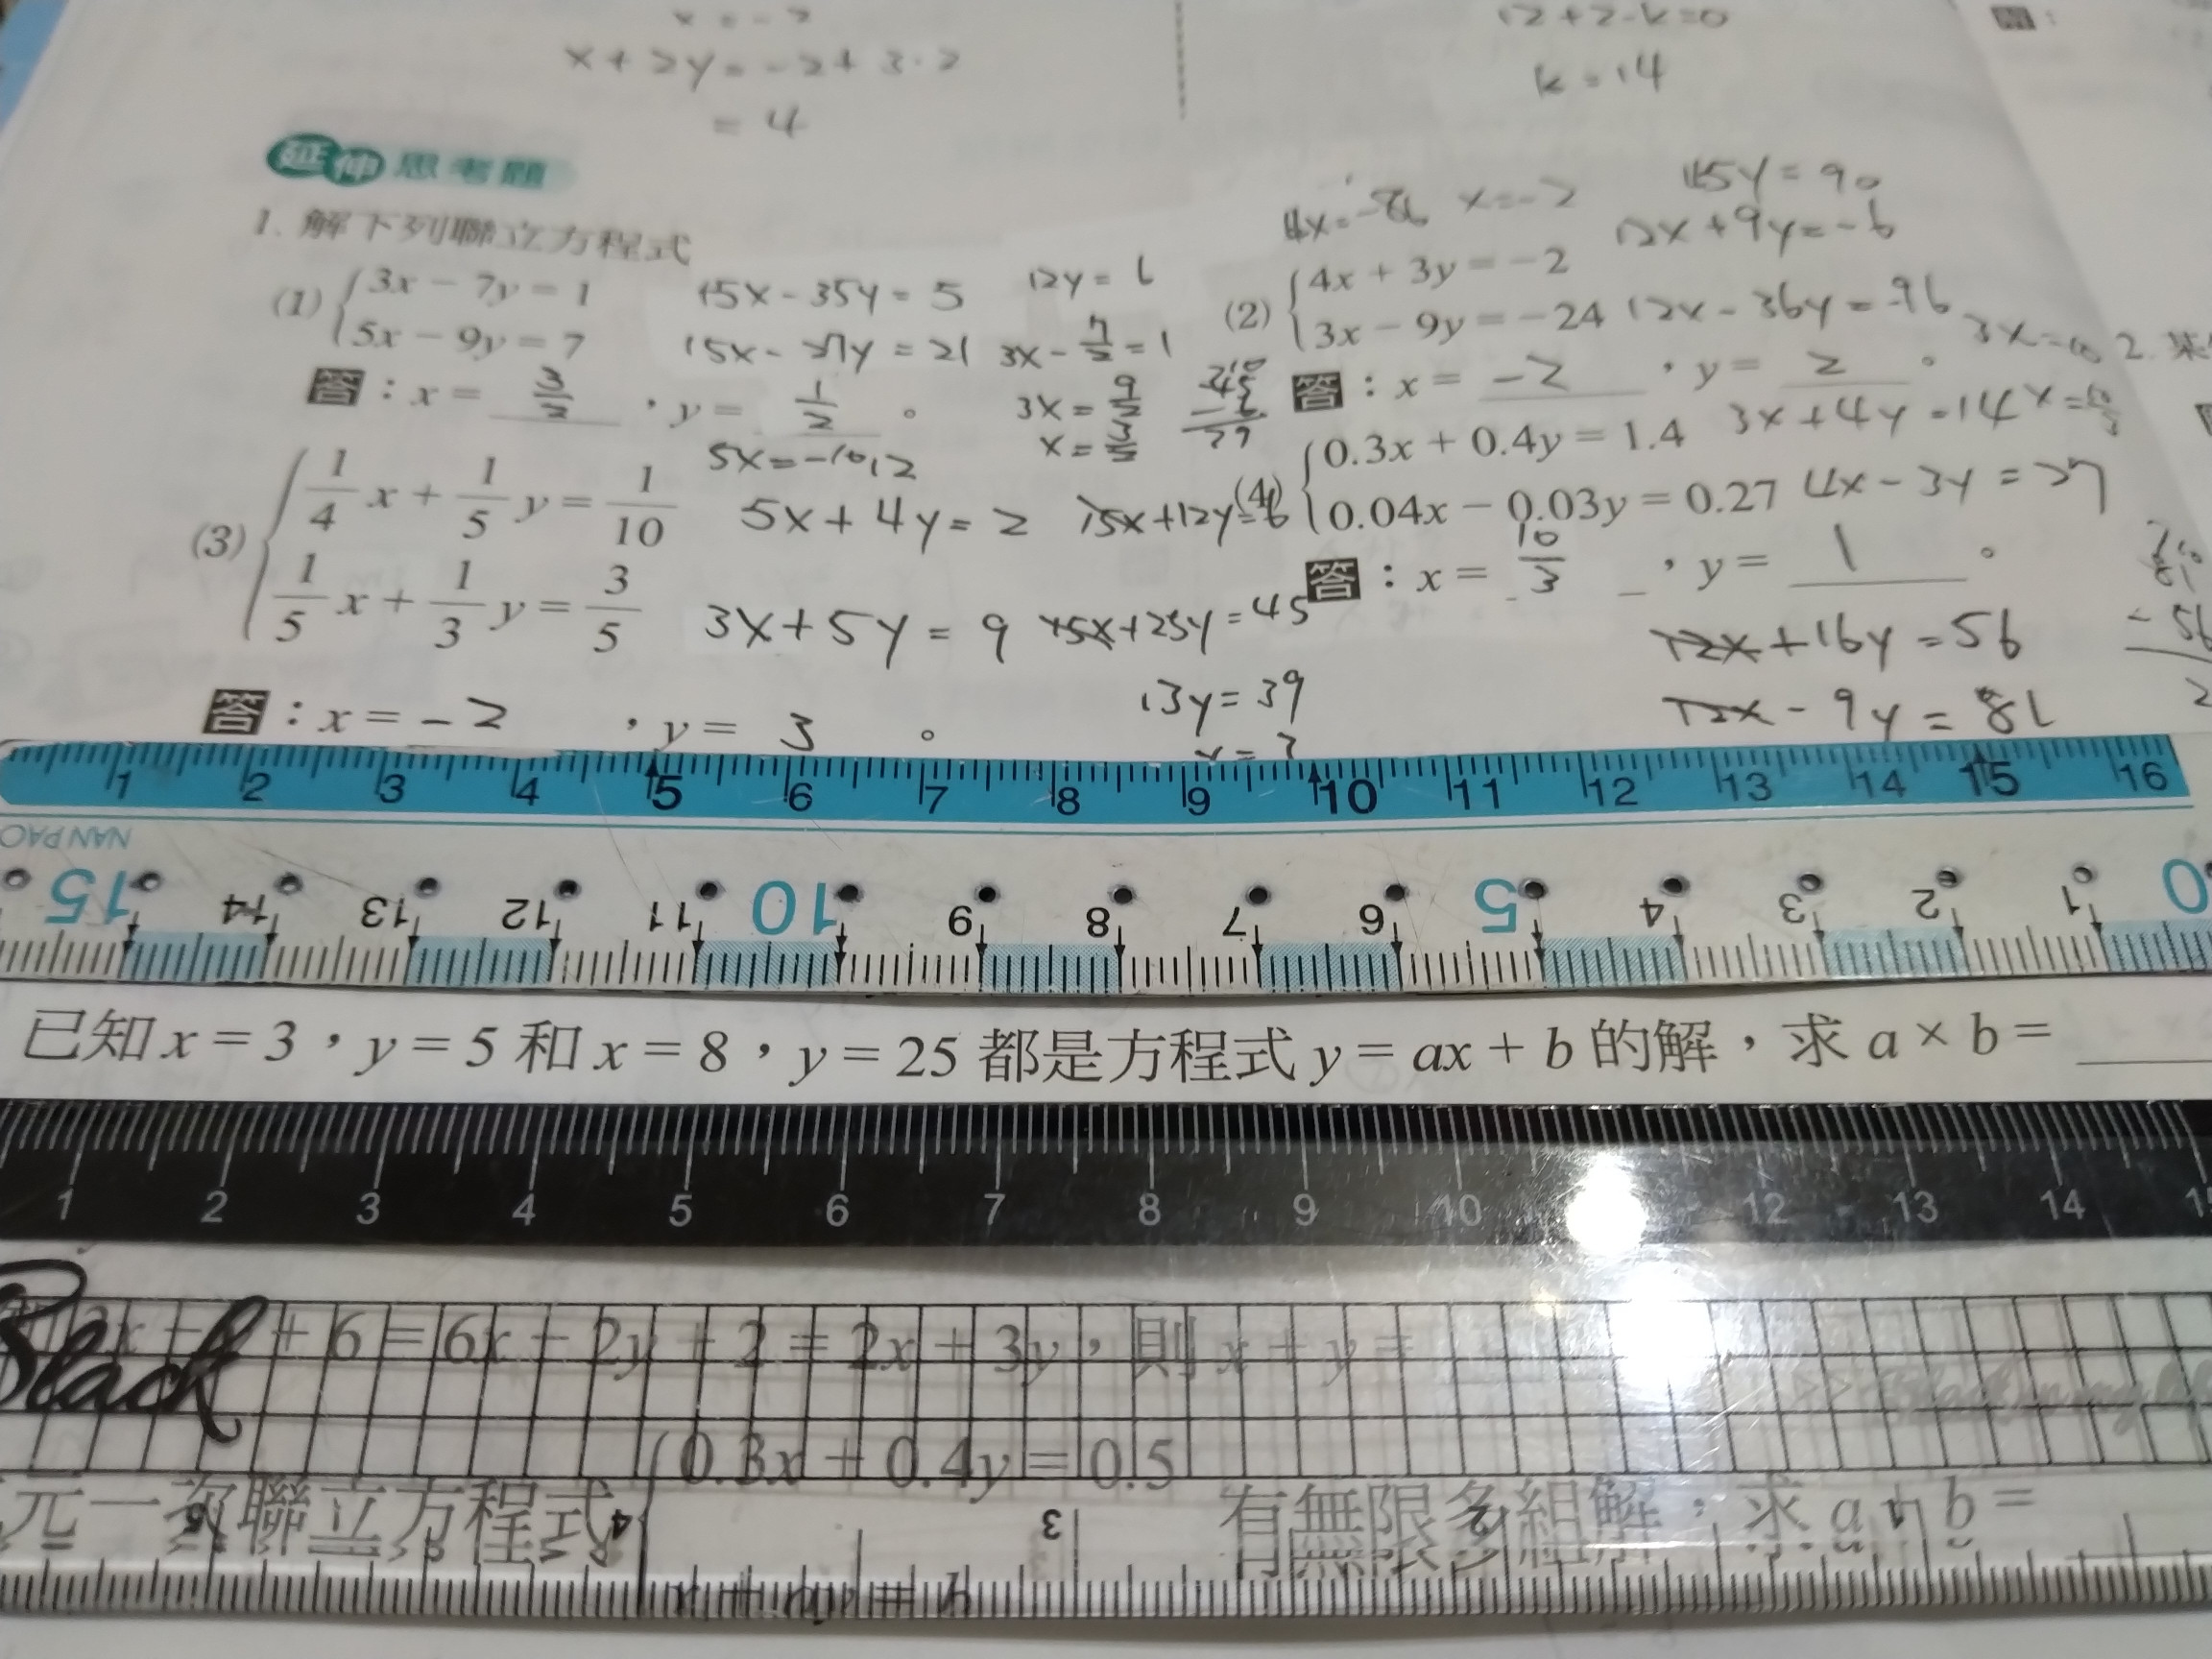 x = -2
x + 2y = -2 + 3·2
= 4
12+2-k=0
k=14
延伸思考題
1. 解下列聯立方程式
(1) 3x − 7y = 1
5x − 9y = 7
15x - 35y = 5
15x - 27y = 21
12y = 6
3x - 7/2 = 1
3x = 9/2
x = 3/2
答：x = 3/2 ，y = 1/2 。
(2) 4x + 3y = −2
3x − 9y = −24
x=-2
15y = 90
12x + 9y = -6
12x - 36y = -96
答：x = -2 ，y = 2 。
(3) 1/4 x + 1/5 y = 1/10
1/5 x + 1/3 y = 3/5
5x + 4y = 2
15x + 12y = 6
3x + 5y = 9
15x + 25y = 45
13y = 39
答：x = -2 ，y = 3 。
(4) 0.3x + 0.4y = 1.4
0.04x − 0.03y = 0.27
3x + 4y = 14
4x - 3y = 27
答：x = 10/3 ，y = 1 。
12x + 16y = 56
12x - 9y = 81
2.
1 2 3 4 5 6 7 8 9 10 11 12 13 14 15 16
NAN PAO
15 14 13 12 11 10 9 8 7 6 5 4 3 2 1 0
已知 x = 3，y = 5 和 x = 8，y = 25 都是方程式 y = ax + b 的解，求 a × b =
1 2 3 4 5 6 7 8 9 10 12 13 14
Black
+ 6 = 6x − 2y + 2 = 2x + 3y，則 x + y =
0.3x + 0.4y = 0.5
元一次聯立方程式
有無限多組解，求 a + b =
4 3 2 1